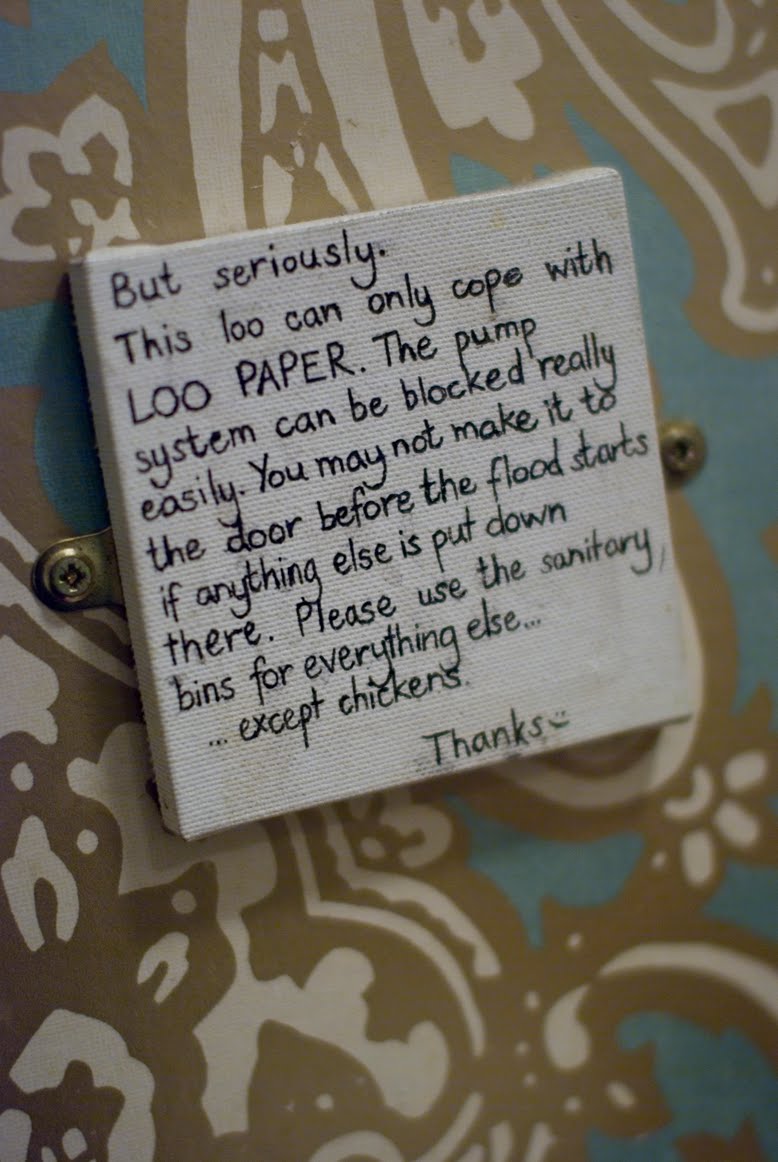 But seriously.
This loo can only cope with
LOO PAPER. The pump
system can be blocked really
easily. You may not make it to
the door before the flood starts
if anything else is put down
there. Please use the sanitary,
bins for everything else...
... except chickens.
Thanks